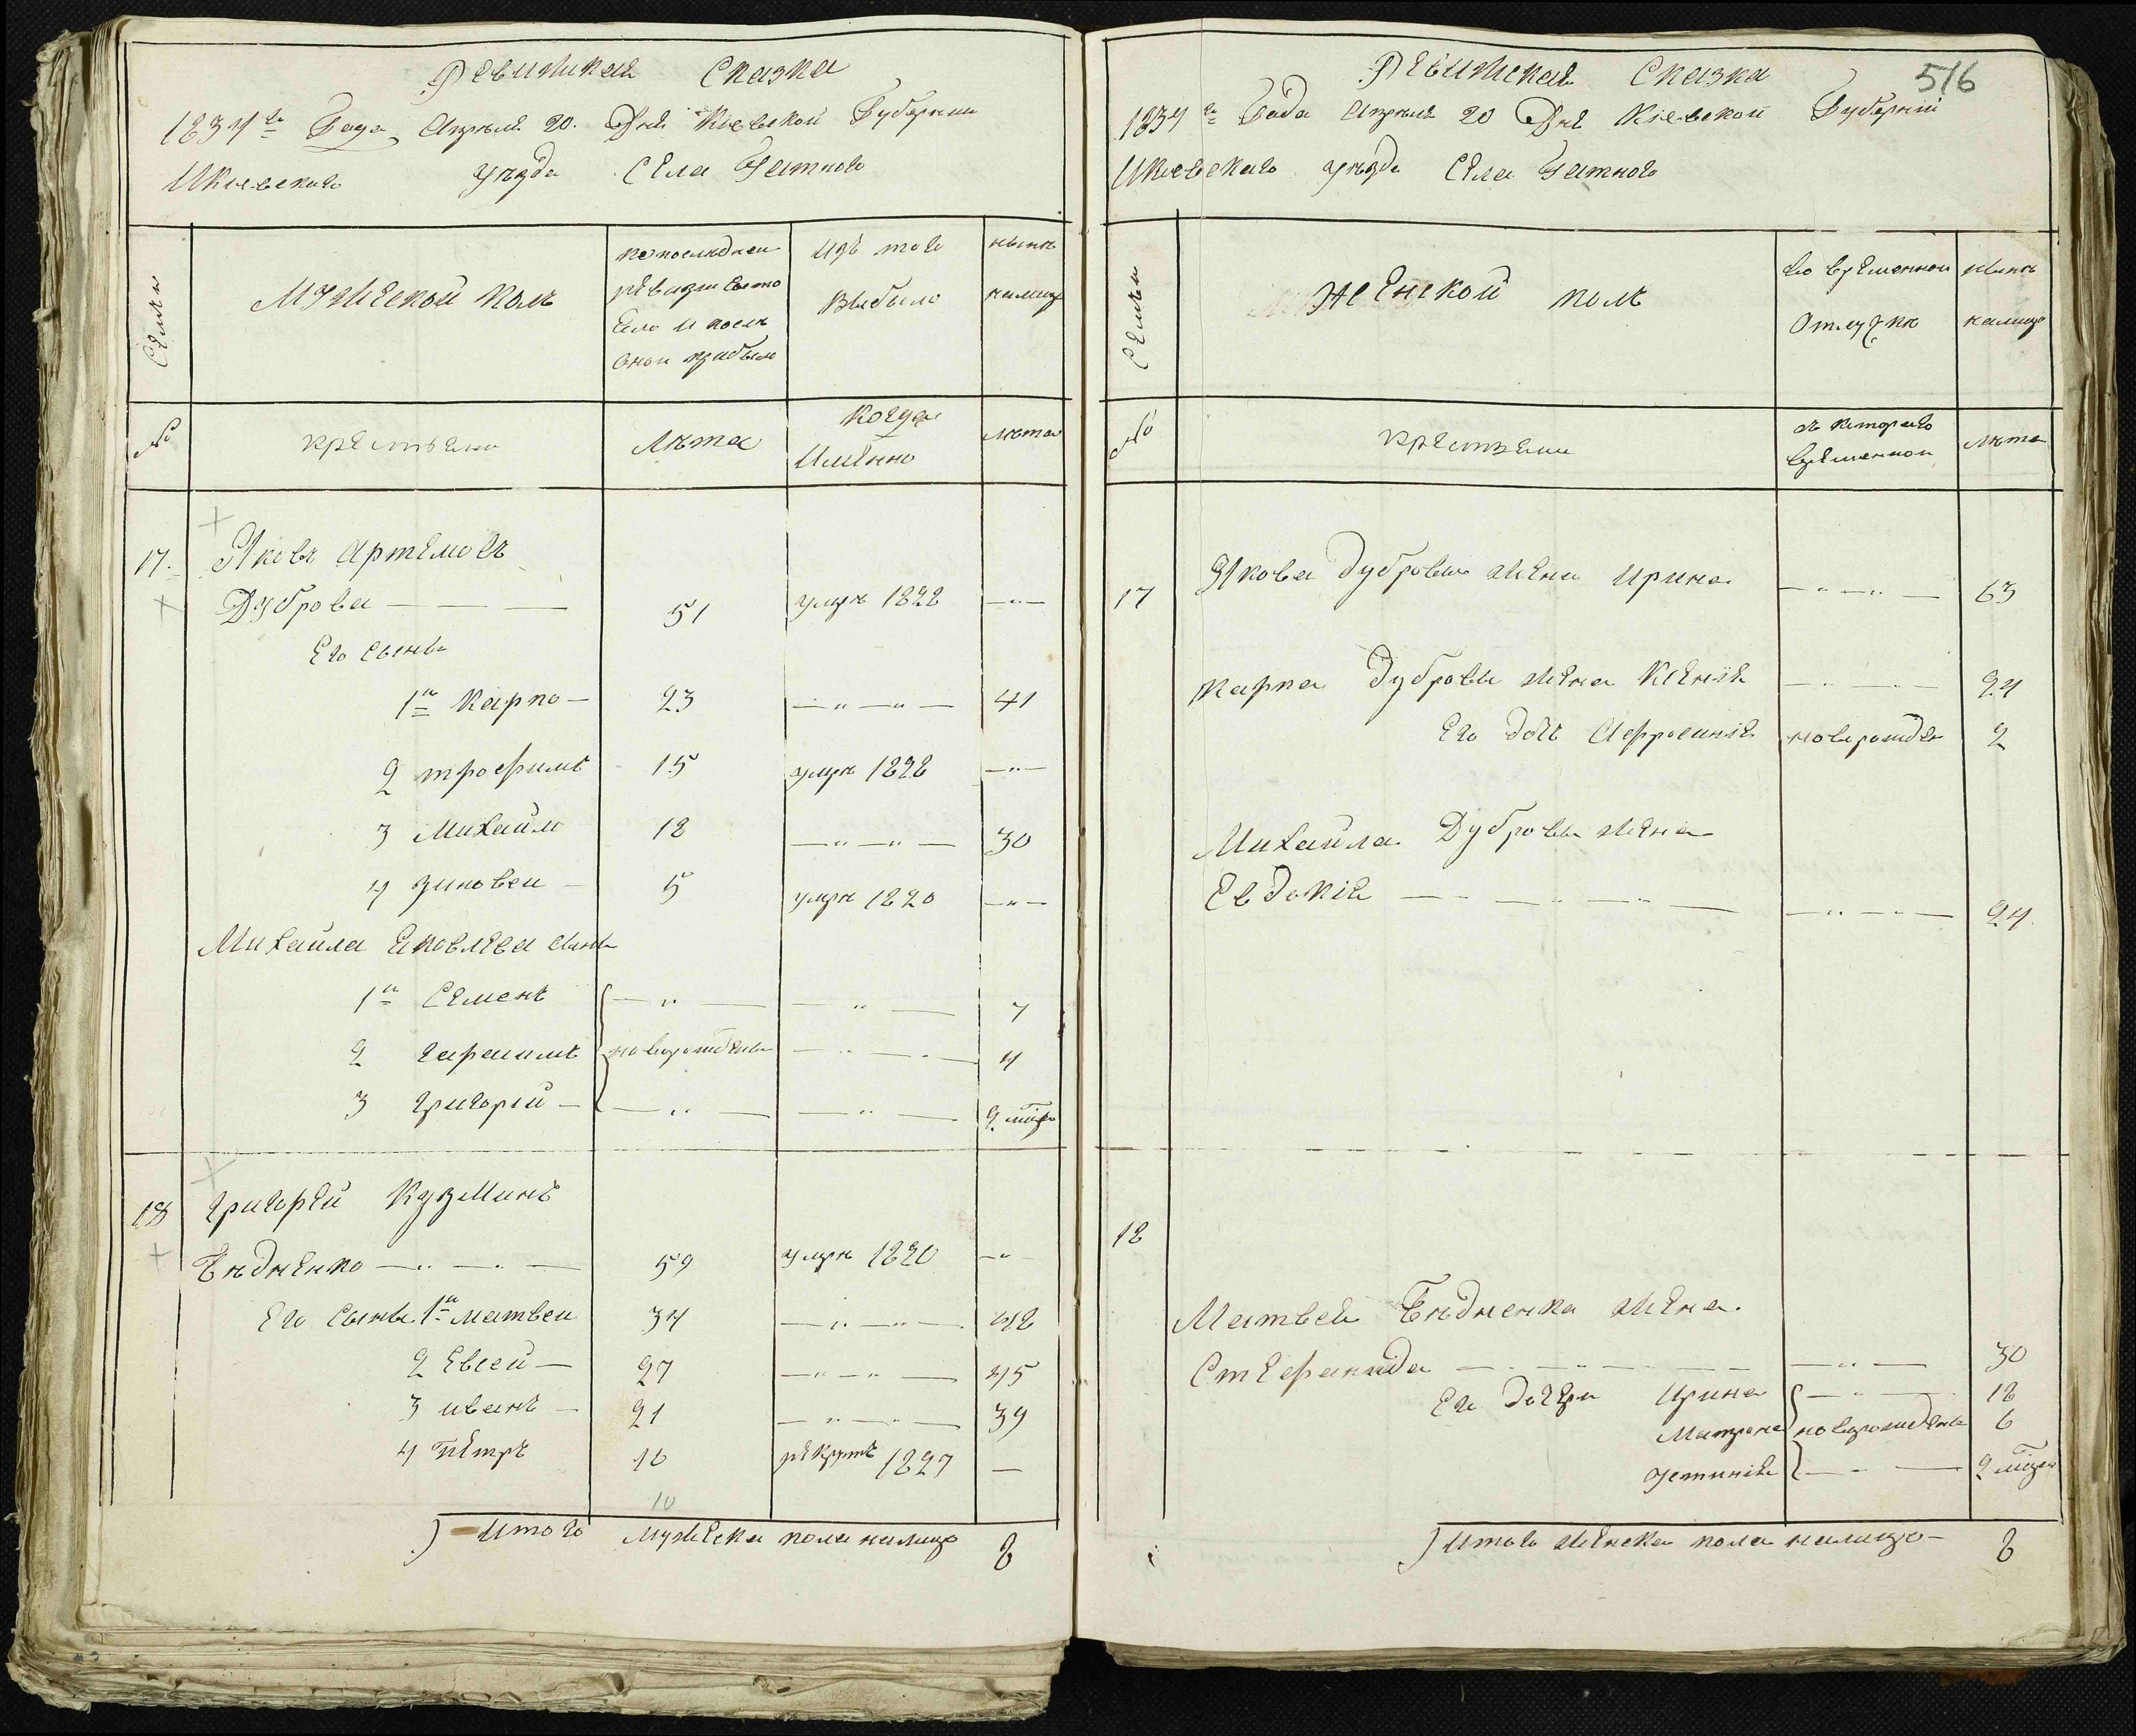 Ревижская Сказка
1834го Года Апреля 20. Дня Киевской Губернии
Икиевскаго уезда Села Гатного
Семьи
Мужеской полъ
по последней
ревизіи состо
яло и после
оной прибыло
изъ того
выбыло
ныне
налицо
№
крестьяне
лета
когда
именно
лета
17. Яковъ Артемовъ
Дуброва — 51 умре 1828 —"—
Его сыны
1й Карпо — 23 —"—"— 41
2 трофимъ 15 умре 1828 —"—
3 Михайло 12 —"—"— 30
4 зиновей — 5 умре 1820 —"—
Михайла Яковлева сыны
1й Семенъ —"— —"— 7
2 гарасимъ новорожденны —"— 4
3 григорій — —"— —"—
18 григорей Кузминъ
Бедненко —"—"— 59 умре 1820 —"
Его сыны 1й матвей 34 —"—"— 48
2 Евсей — 27 —"—"— 45
3 иванъ — 21 —"—"— 39
4 Петръ 10 рекрутъ 1827 —
10
Итого мужеска пола налицо 8
516
Ревижская Сказка
1834го Года Апреля 20 Дня Кіевской Губерніи
Икиевскаго уезда Села Гатного
Семьи
Женской полъ
во временной
отлучке
ныне
налицо
№
крестьяни
съ котораго
временной
лета
17 Якова Дубровы жена Ирина —"—"— 63
Карпа Дубровы жена Ксенія —"—"— 24
Его дочь Афросинія новорожден 2
Михайла Дубровы жена
Евдокія —"—"— 24
18
Матвея Бедненка жена
Стефанида —"—"— 30
Его дочери Ирина —"— 12
Матрона новорожденны 6
Устинія —"—
Итого женска пола налицо — 8